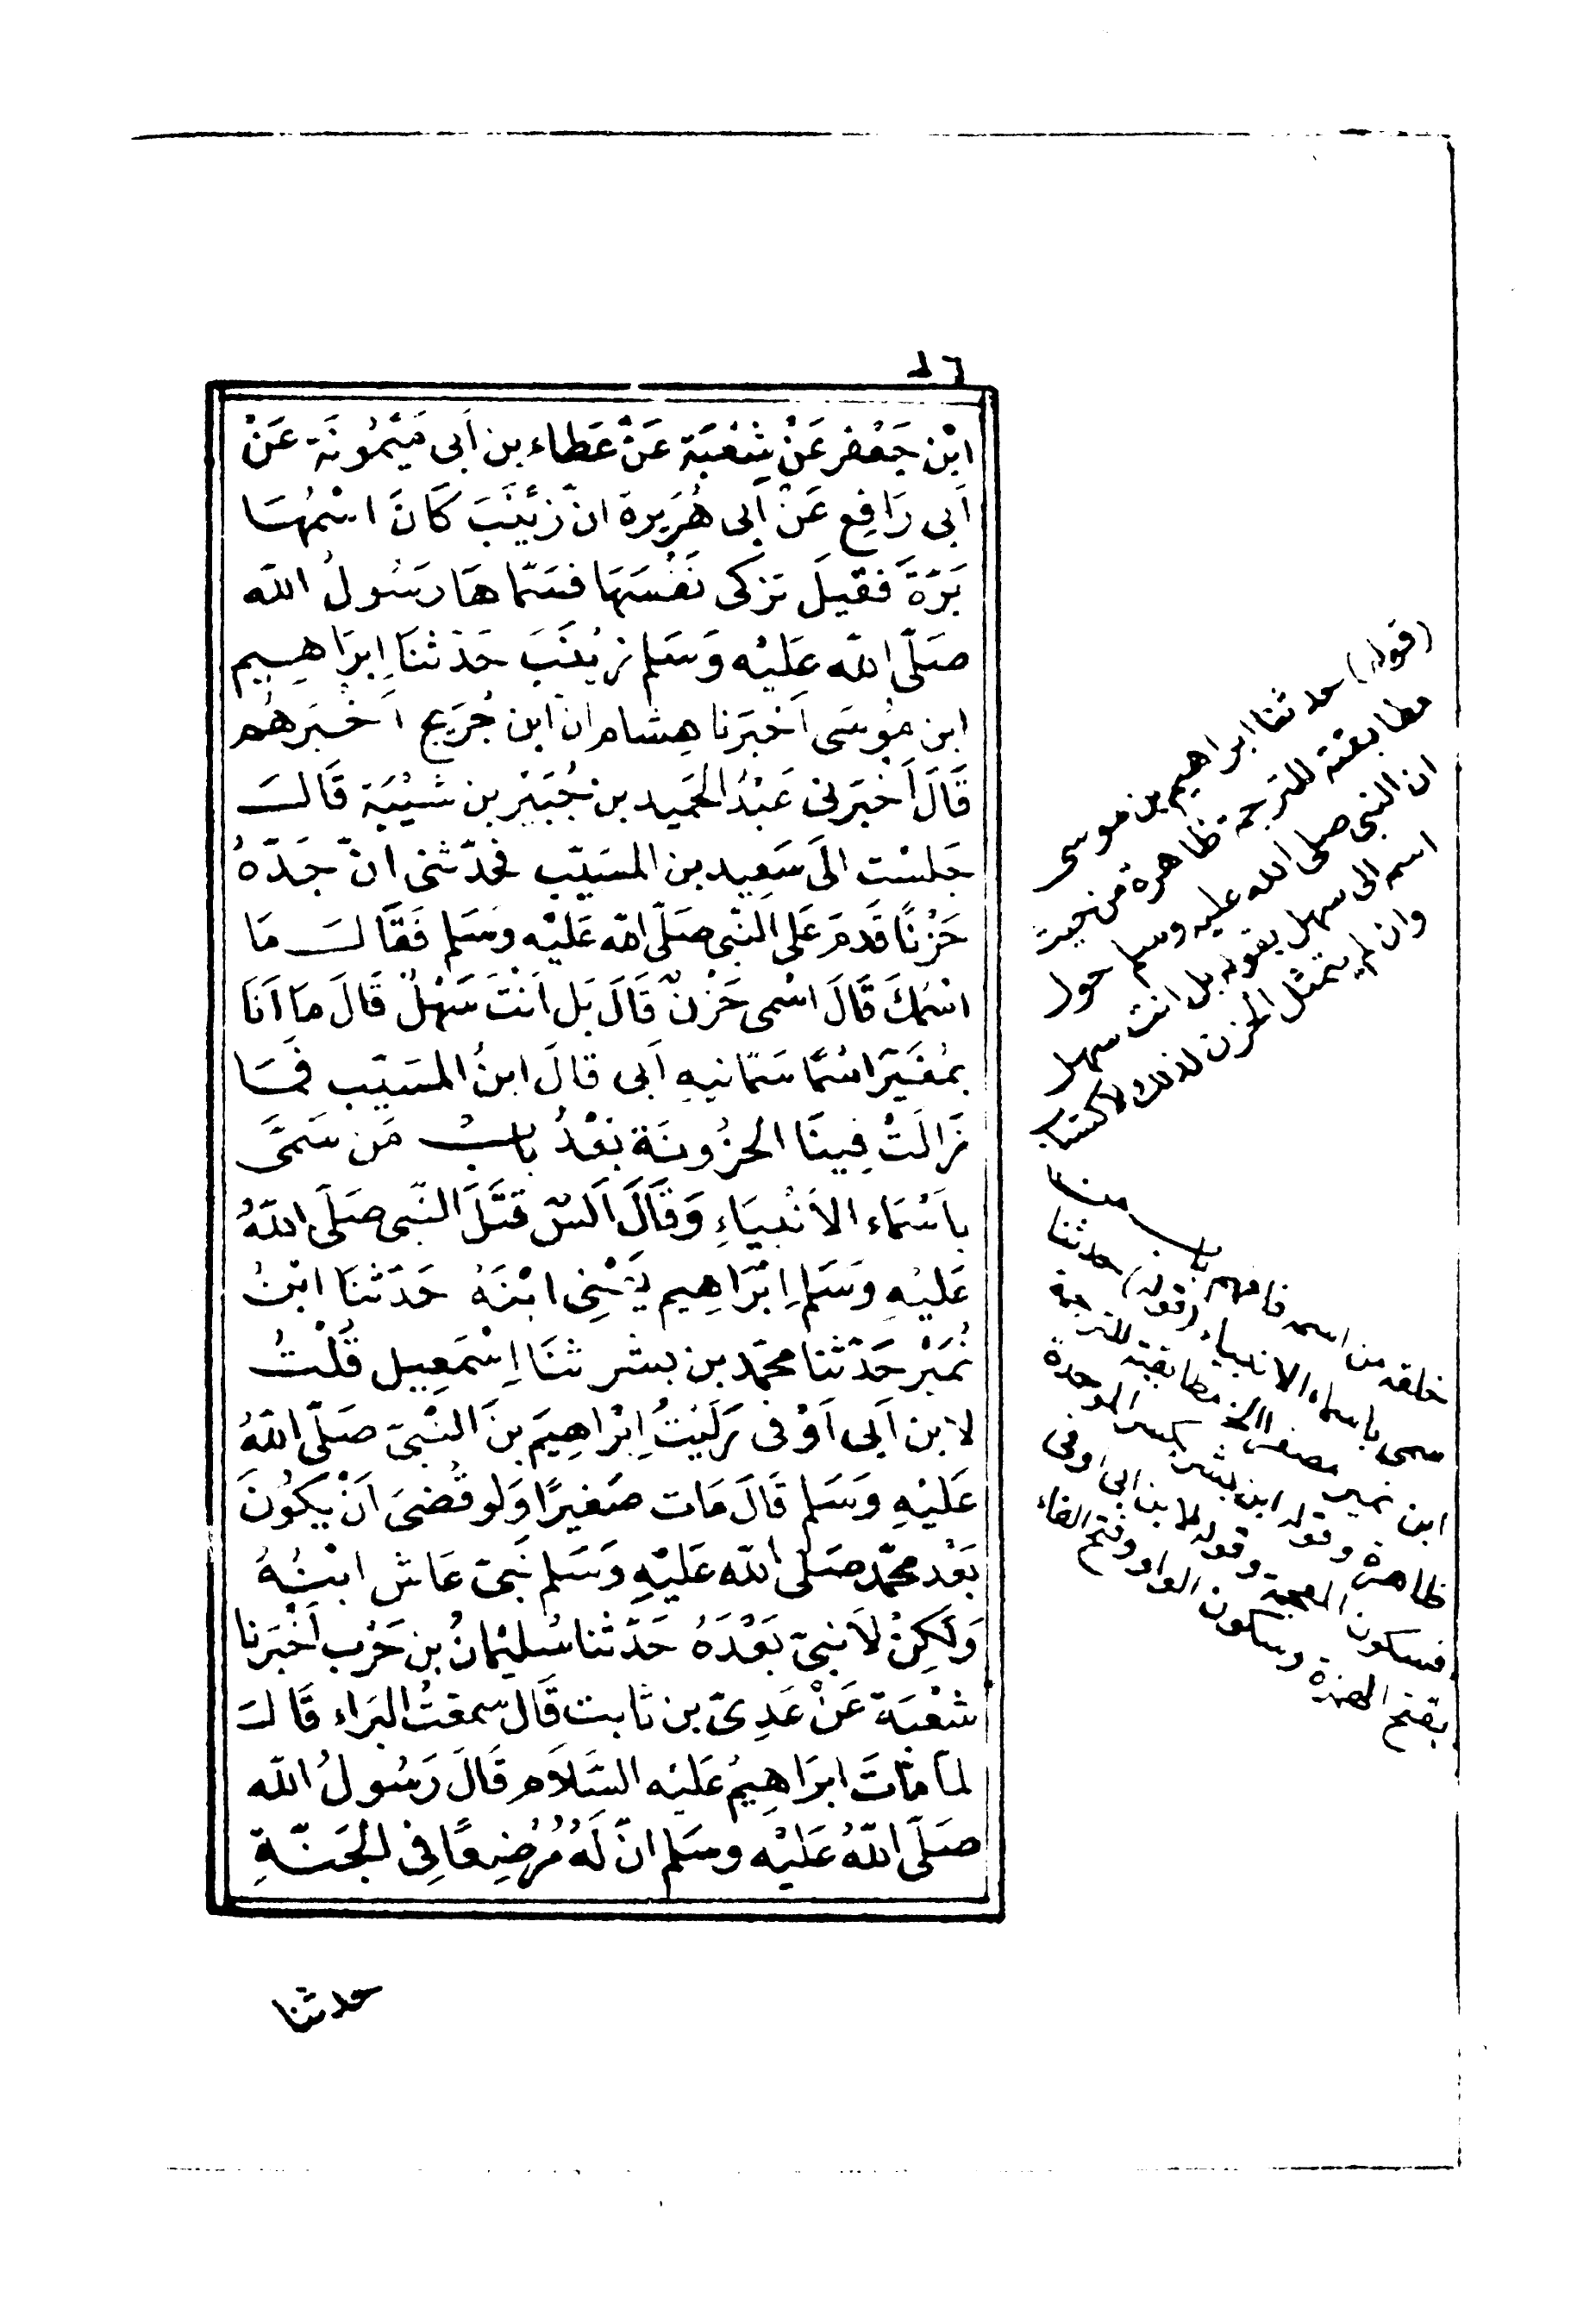 ابْن جَعْفر عَنْ شعْبَة عَنْ عَطاء بن اَبى مَيْمُونَة عَنْ
اَبى رَافِع عَنْ اَبى هُرَيرة انّ زَيْنَبَ كَانَ اسْمُهَا
بَرّةَ فَقيلَ تزكى نَفْسَهَا فسَمّاهَا رَسُولُ الله
صَلّى الله عَليْه وَسَلم زيْنَبَ حَدّثنَا اِبرَاهِيم
ابن مُوسَى اَخبَرَنا هِشام ان ابن جُرَيج اَخْبَرهُم
قَالَ اَخْبَرَنى عَبْدُ الحَميد بن جُبَيْر بن شيْبَة قَالَ
جَلسْت الَى سَعِيد بن المسَيّب فحَدّثنى انّ جَدّهُ
حَزْنًا قَدمَ عَلى النّبى صَلّى الله عَليْه وسَلم فَقَالَ مَا
اسْمُكَ قَالَ اسْمى حَزْنٌ قَالَ بَل اَنْتَ سَهْلٌ قَالَ مَا اَنَا
بمُغَيّر اسْمًا سَمّانيهِ اَبى قالَ ابنُ المسَيّب فَمَا
زَالَتْ فِينَا الحزُونَة بَعْدُ بابُ مَن سَمَّى
باَسْمَاء الاَنْبيَاءِ وَقَالَ اَنسٌ قَبَّلَ النّبى صَلَّى اللهُ
عَليْهِ وسَلم اِبْرَاهِيم يَعْنِى ابْنَهُ حَدّثنَا ابْنُ
نُمَيْر حَدّثنا محمّد بن بشر ثنَا اِسْمَعِيل قُلْتُ
لابن اَبى اَوْفى رَاَيْتُ اِبْرَاهِيمَ بنَ النّبىّ صَلّى اللهُ
عَليْهِ وَسَلم قَالَ مَات صَغيرًا وَلو قُضىَ اَنْ يَكُونَ
بَعْد محمّد صَلى الله عَليْهِ وَسَلم نَبىّ عَاشَ ابْنُهُ
وَلَكِنْ لَا نَبىّ بَعْدَهُ حَدّثنا سُليْمَانُ بن حَرْب اَخْبَرنا
شعْبَة عَنْ عَدِىّ بن ثابت قَال سمعْتُ البَراء قَالَ
لمّا مَاتَ ابرَاهِيمُ عَليْه السَّلَام قَالَ رَسُولُ الله
صَلّى اللهُ عَليْه وسَلم انّ لَهُ مُرْضِعًا فِى الجَنّةِ
حدثنا
(قوله) حدثنا ابراهيم بن موسى
مطابقته للترجمة ظاهرة من حيث
ان النبى صلى الله عليه وسلم حول
اسمه الى سهل بقوله بل انت سهل
وان لم يتمثل الحزن لذلك
خلقه من اسمه فافهم باب من
سمى باسماء الانبياء (قوله) حدثنا
ابن نمير الخ مطابقته للترجمة
ظاهرة وقوله ابن بشر بكسر الموحدة
فسكون المعجمة وقوله لابن ابى اوفى
بفتح الهمزة وسكون الواو وفتح الفاء